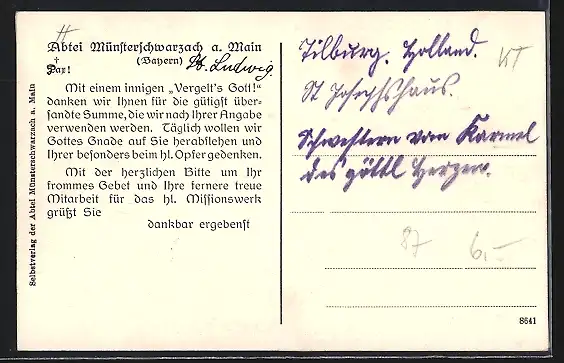 Abtei Münsterschwarzach a. Main
(Bayern) St. Ludwig.
† Pax!
Mit einem innigen „Vergelt's Gott!"
danken wir Ihnen für die gütigst über-
sandte Summe, die wir nach Ihrer Angabe
verwenden werden. Täglich wollen wir
Gottes Gnade auf Sie herabflehen und
Ihrer besonders beim hl. Opfer gedenken.
Mit der herzlichen Bitte um Ihr
frommes Gebet und Ihre fernere treue
Mitarbeit für das hl. Missionswerk
grüßt Sie
dankbar ergebenst
Selbstverlag der Abtei Münsterschwarzach a. Main
Tilburg. Holland.
St Josephshaus.
Schwestern vom Karmel
des göttl Herzen.
87 6,–
8641